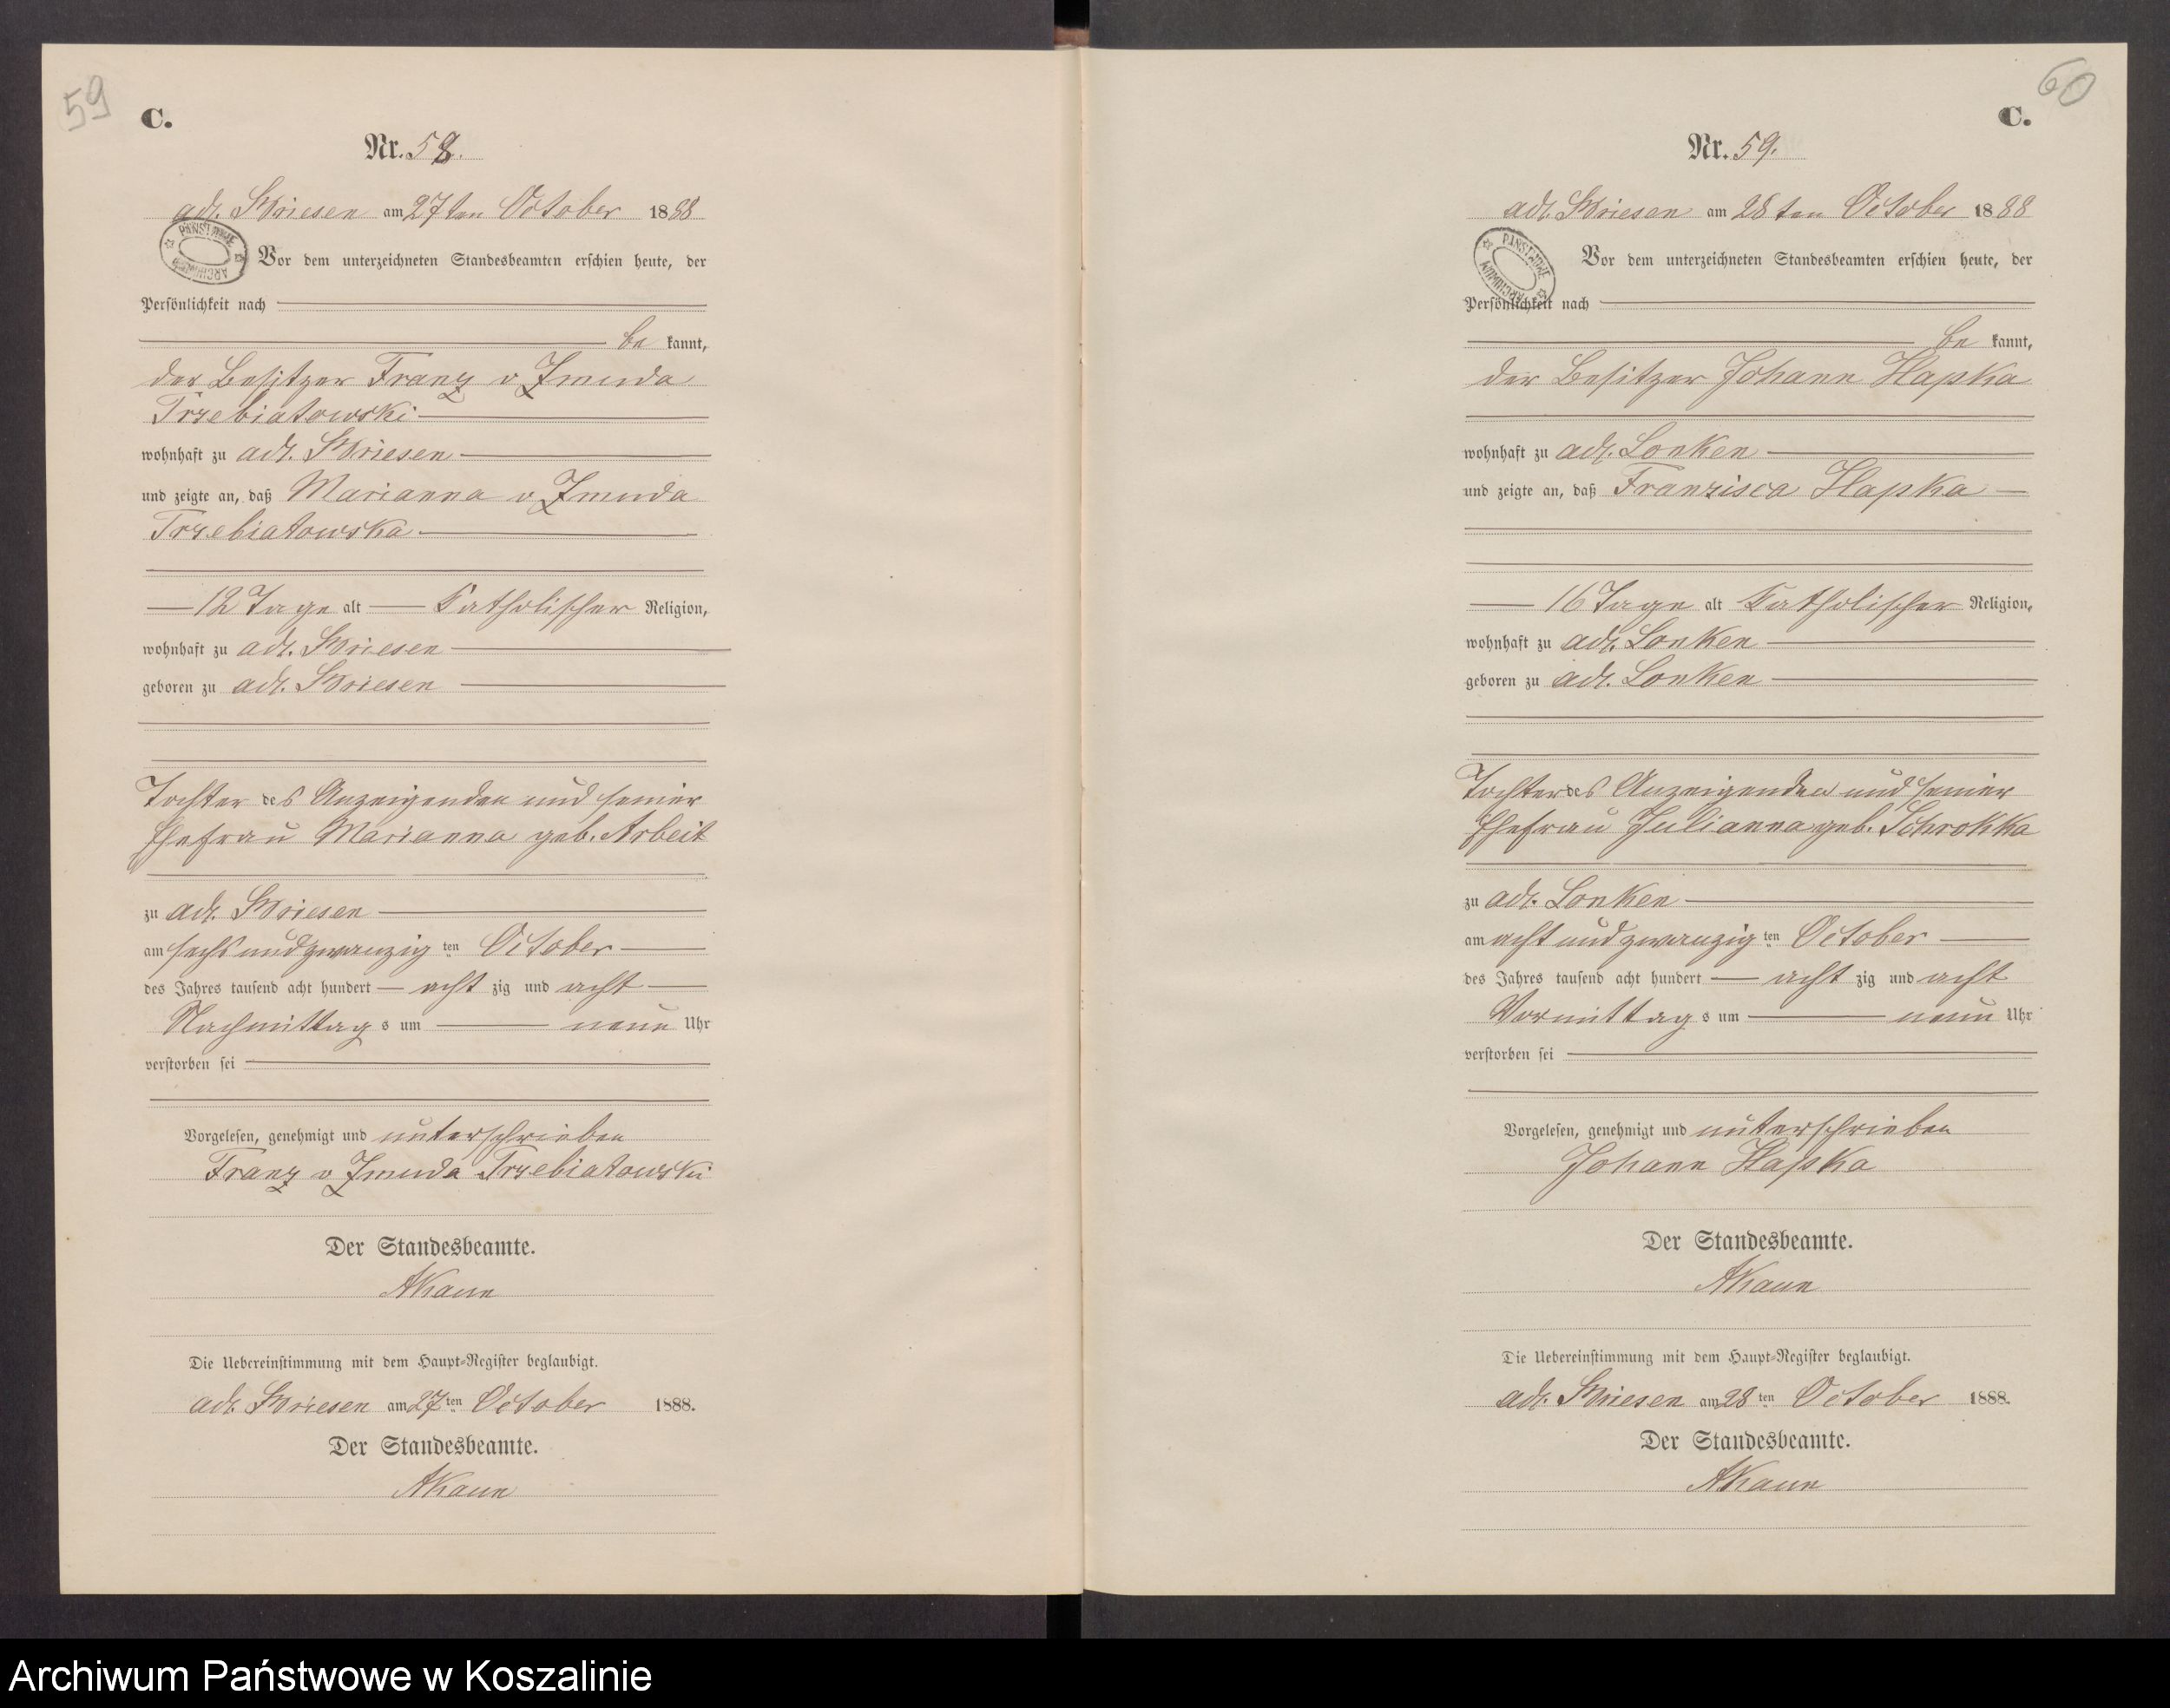 59
C.
Nr. 58.
adl. Briesen am 27ten October 1888
PAŃSTWOWE ARCHIWUM
Vor dem unterzeichneten Standesbeamten erschien heute, der
Persönlichkeit nach
be kannt,
der Besitzer Franz v Zmuda
Trzebiatowski
wohnhaft zu adl. Briesen
und zeigte an, daß Marianna v Zmuda
Trzebiatowska
12 Tage alt Katholischer Religion,
wohnhaft zu adl. Briesen
geboren zu adl. Briesen
Tochter des Anzeigenden und seiner
Ehefrau Marianna geb. Arbeit
zu adl. Briesen
am sechs und zwanzig ten October
des Jahres tausend acht hundert acht zig und acht
Nachmittag s um neun Uhr
verstorben sei
Vorgelesen, genehmigt und unterschrieben
Franz v Zmuda Trzebiatowski
Der Standesbeamte.
Die Uebereinstimmung mit dem Haupt-Register beglaubigt.
adl. Briesen am 27ten October 1888.
Der Standesbeamte.
60
C.
Nr. 59.
adl. Briesen am 28ten October 1888
PAŃSTWOWE ARCHIWUM
Vor dem unterzeichneten Standesbeamten erschien heute, der
Persönlichkeit nach
be kannt,
der Besitzer Johann Hapka
wohnhaft zu adl. Lonken
und zeigte an, daß Franzisca Hapka
16 Tage alt Katholischer Religion,
wohnhaft zu adl. Lonken
geboren zu adl. Lonken
Tochter des Anzeigenden und seiner
Ehefrau Julianna geb. Schrokka
zu adl. Lonken
am acht und zwanzig ten October
des Jahres tausend acht hundert acht zig und acht
Vormittag s um neun Uhr
verstorben sei
Vorgelesen, genehmigt und unterschrieben
Johann Hapka
Der Standesbeamte.
Die Uebereinstimmung mit dem Haupt-Register beglaubigt.
adl. Briesen am 28ten October 1888.
Der Standesbeamte.
Archiwum Państwowe w Koszalinie